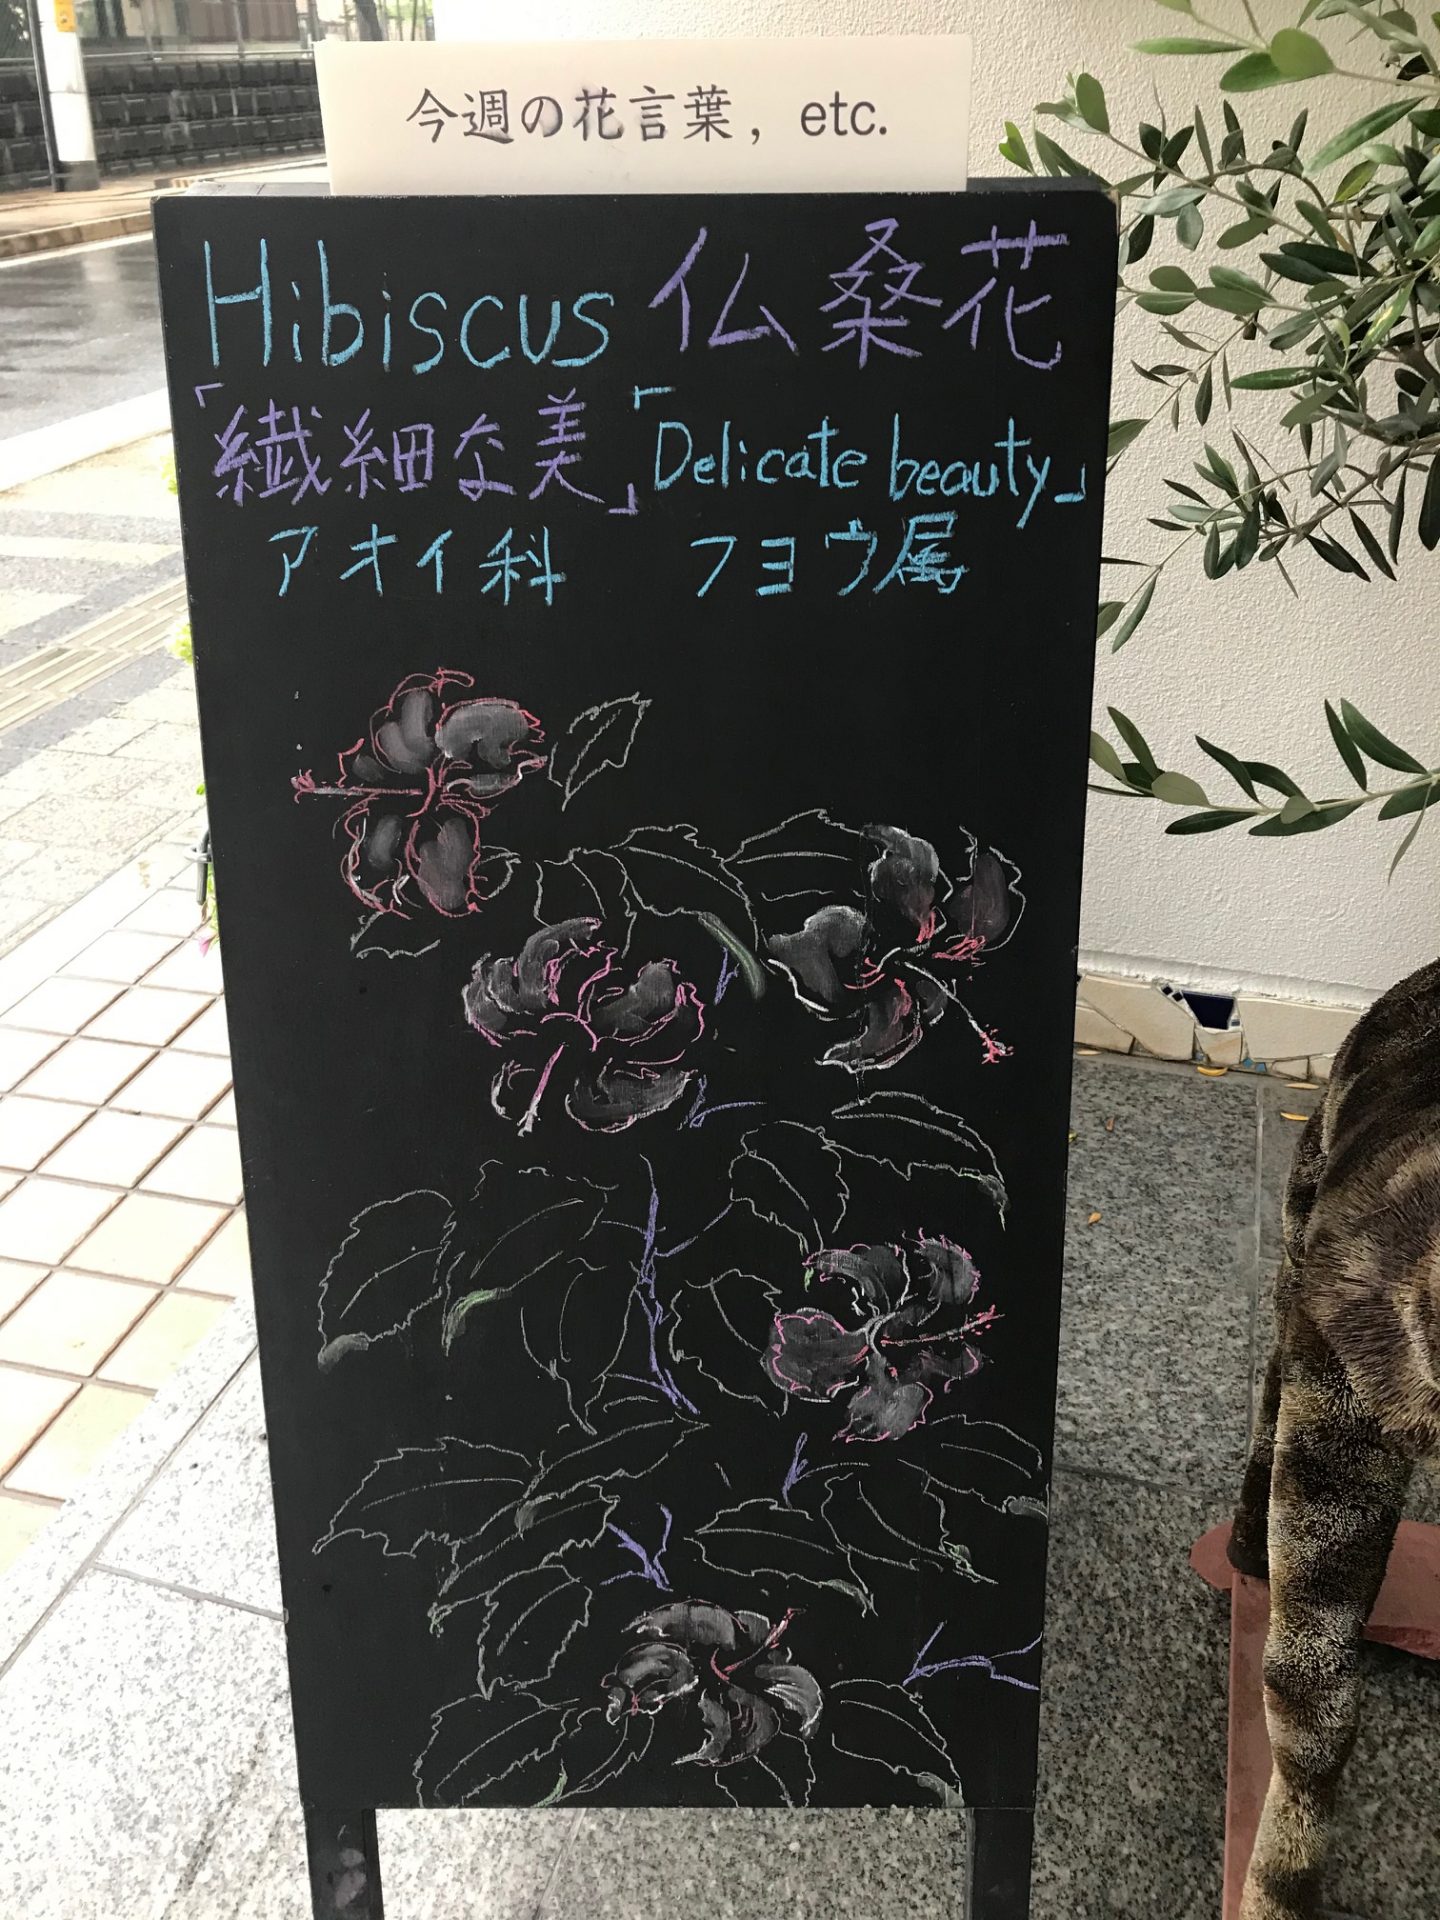 今週の花言葉, etc.
Hibiscus 仏桑花
「繊細な美」「Delicate beauty」
アオイ科 フヨウ属